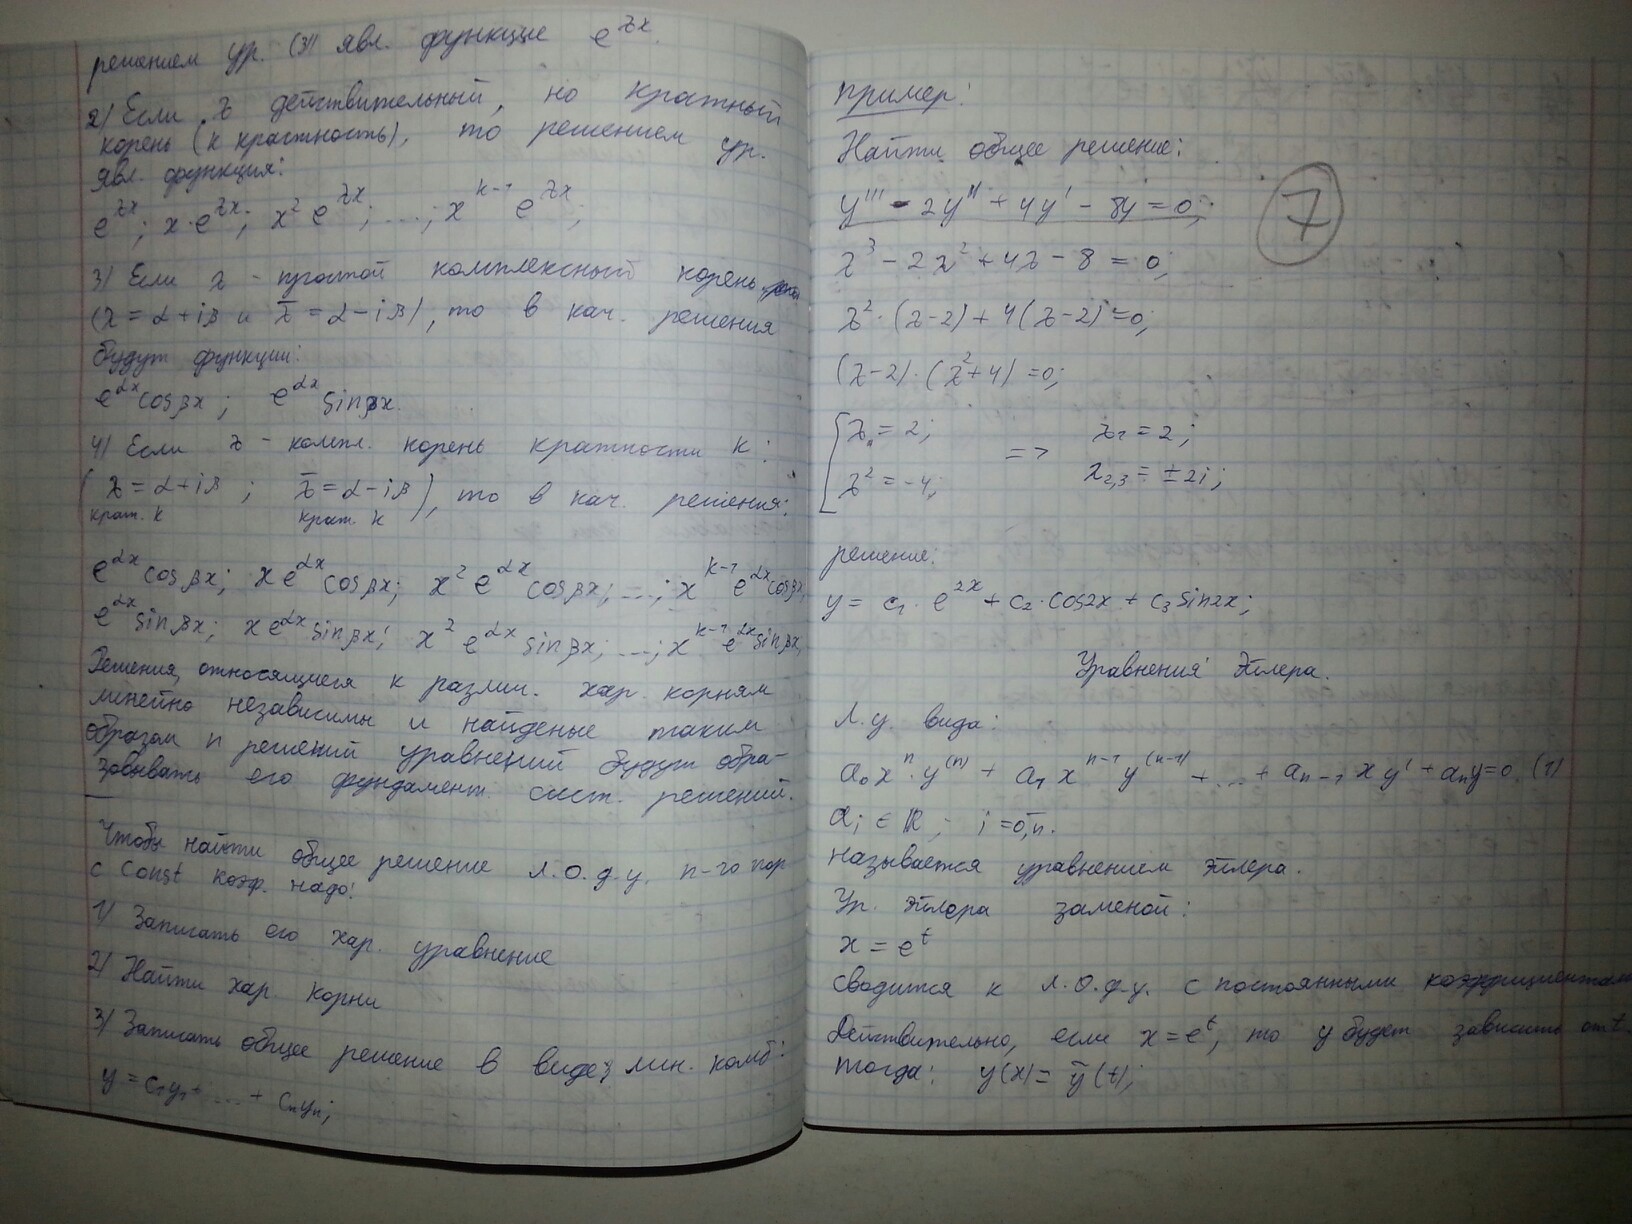 решением ур. (3) явл. функция e^λx.
2) Если λ действительный, но кратный
корень (к кратность), то решением ур.
явл. функция:
e^λx; x·e^λx; x² e^λx; ...; x^k-1 e^λx;
3) Если λ - простой комплексный корень
(λ = α+iβ и λ̄ = α-iβ), то в кач. решения
будут функции:
e^αx cosβx; e^αx sinβx.
4) Если λ - компл. корень кратности k:
(λ = α+iβ ; λ̄ = α-iβ), то в кач. решения:
крат. k крат. k
e^αx cosβx; xe^αx cosβx; x² e^αx cosβx; ...; x^k-1 e^αx cosβx,
e^αx sinβx; xe^αx sinβx; x² e^αx sinβx; ...; x^k-1 e^αx sinβx,
Решения, относящиеся к различ. хар. корням
линейно независимы и найденые таким
образом n решений уравнений будут обра-
зовывать его фундамент. сист. решений.
Чтобы найти общее решение л.о.д.у. n-го пор
с const коэф. надо:
1) Записать его хар. уравнение
2) Найти хар корни
3) Записать общее решение в виде лин. комб:
y = c₁y₁+ ... + cₙyₙ;
Пример:
Найти общее решение:
y''' - 2y'' + 4y' - 8y = 0;
7
λ³ - 2λ² + 4λ - 8 = 0;
λ²·(λ-2) + 4(λ-2) = 0;
(λ-2)·(λ²+4) = 0;
[λ = 2; => λ₁ = 2;
λ² = -4; λ₂,₃ = ±2i;
решение:
y = c₁·e^2x + c₂·cos2x + c₃ sin2x;
Уравнения Эйлера.
Л.у. вида:
a₀xⁿ·y⁽ⁿ⁾ + a₁xⁿ⁻¹y⁽ⁿ⁻¹⁾ + ... + aₙ₋₁xy' + aₙy=0. (1)
aᵢ ∈ ℝ, i = 0,n.
называется уравнением Эйлера.
Ур. Эйлера заменой:
x = e^t
сводится к л.о.д.у. с постоянными коэффициентами
Действительно, если x = e^t, то y будет зависить от t.
тогда: y(x) = ȳ(t);